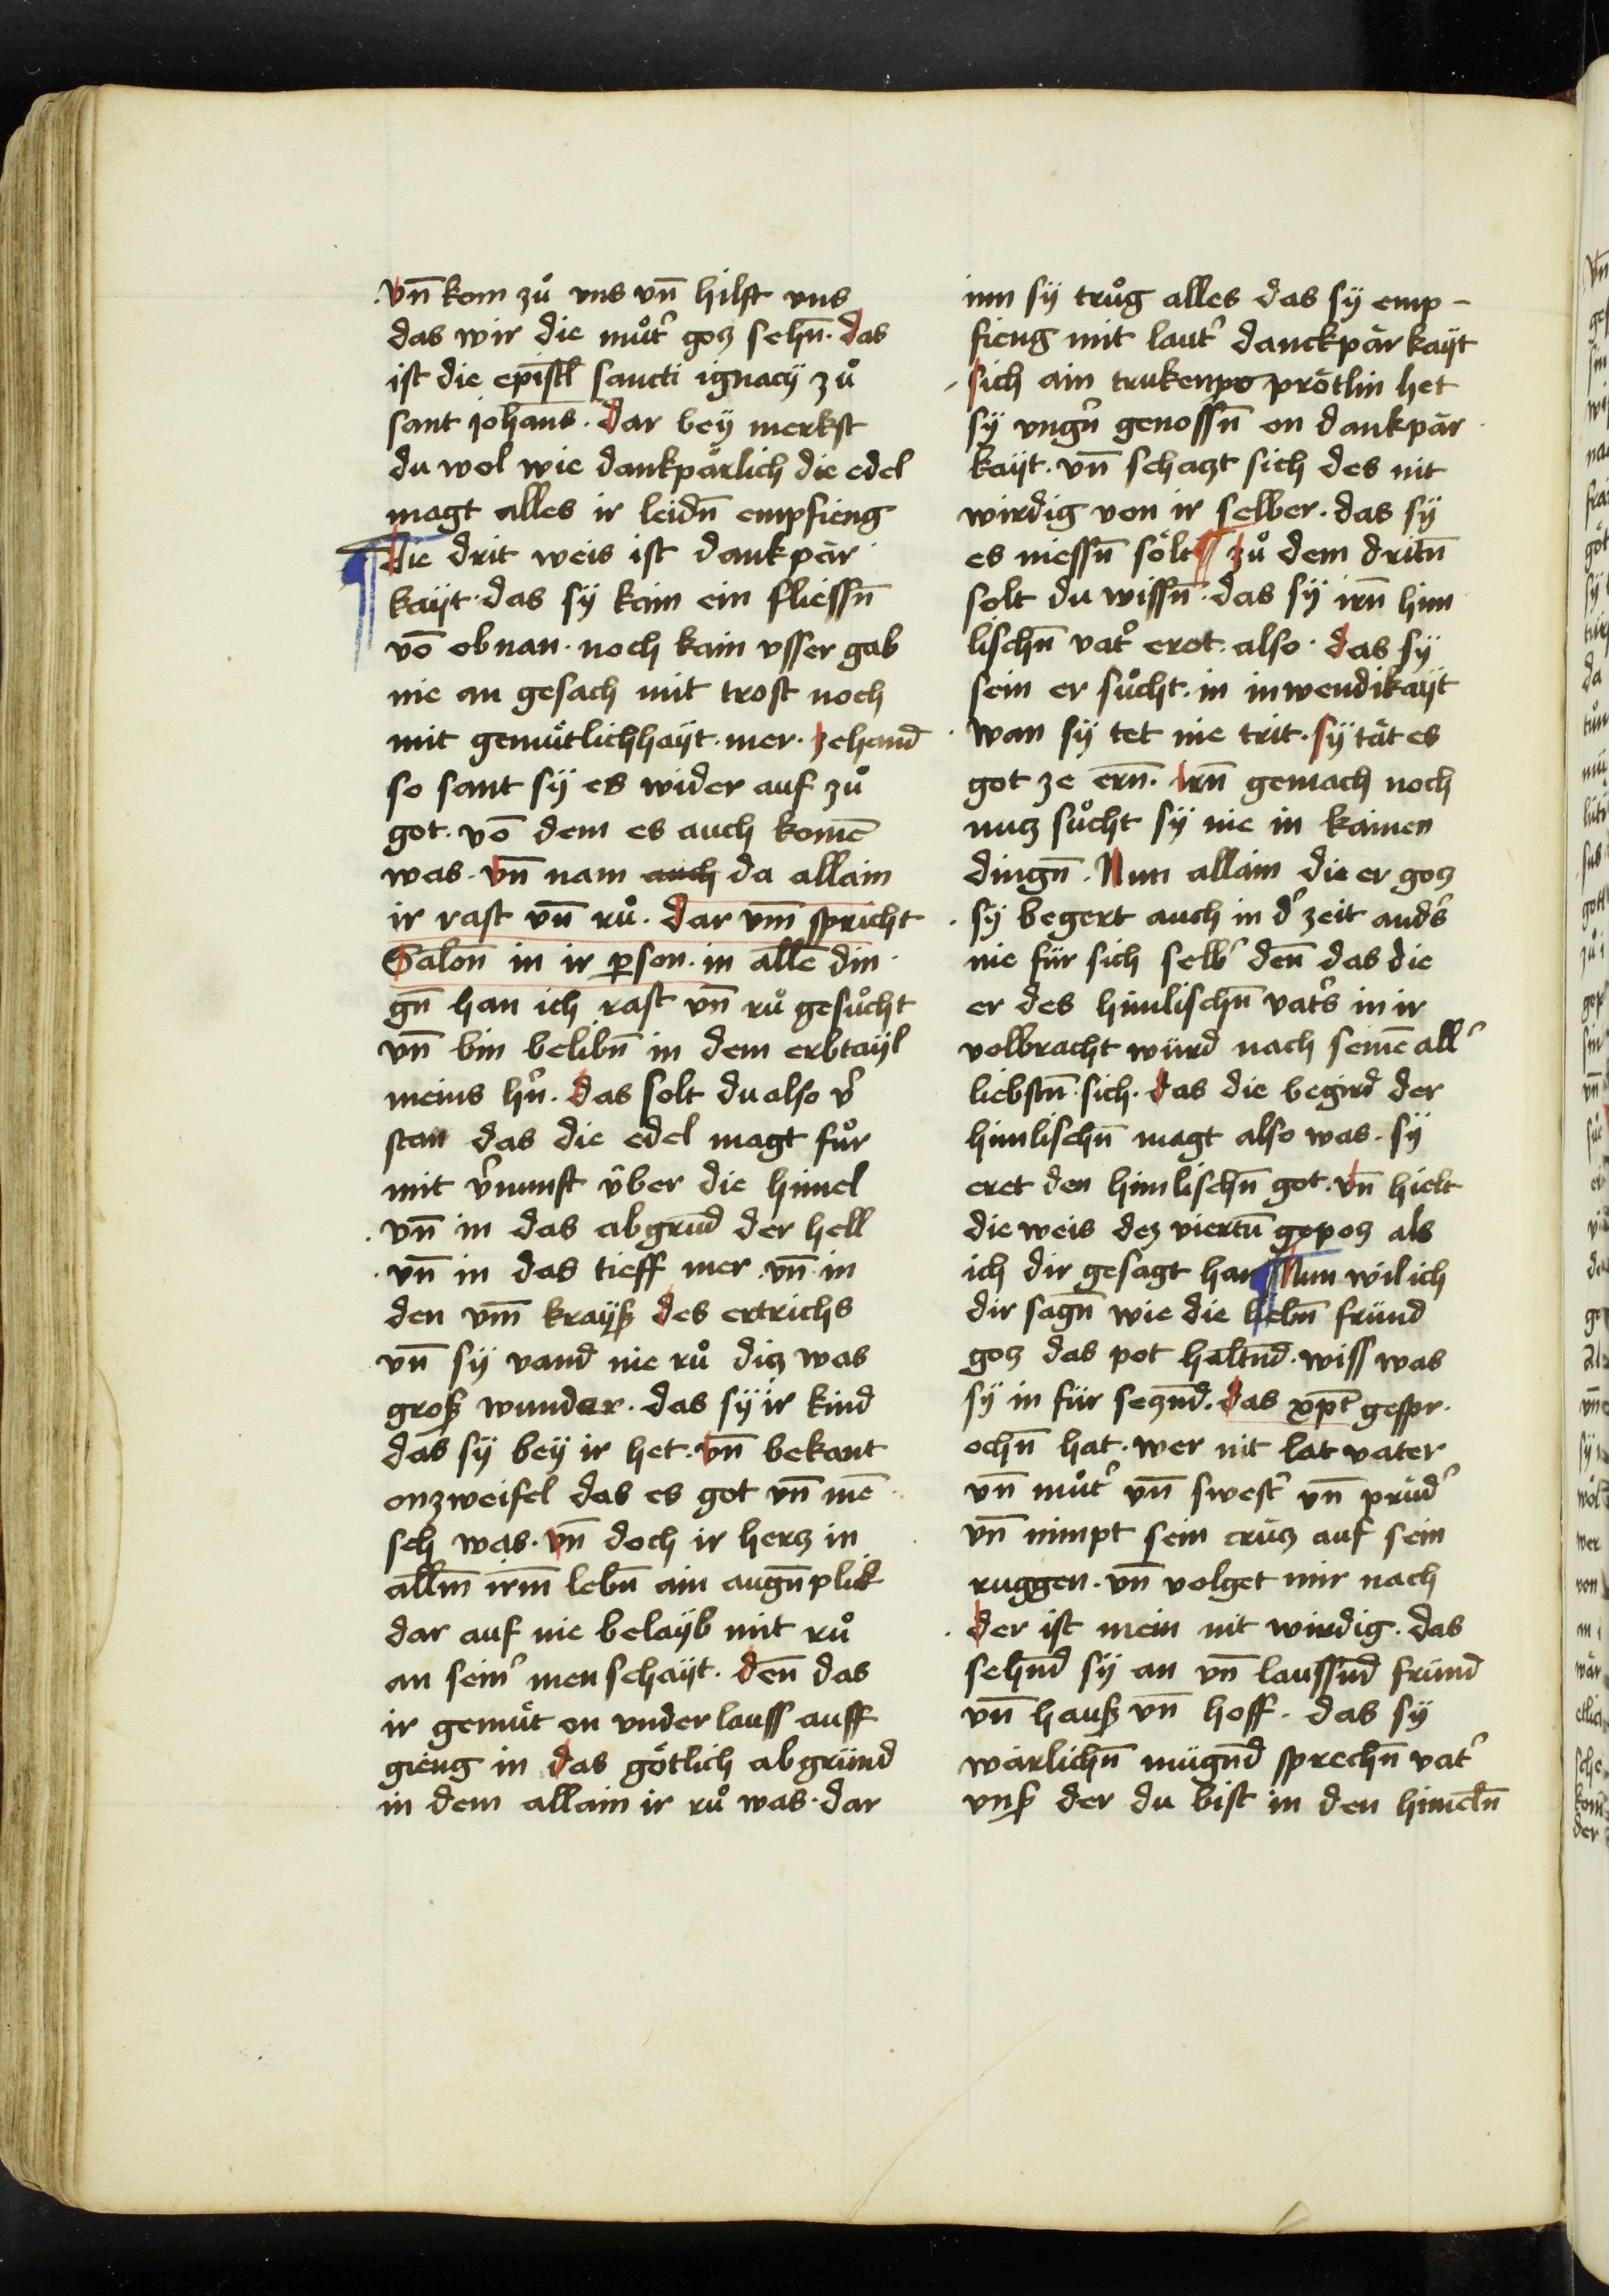 vn̄ kom zů vns vn̄ hilft vns
das wir die můt' gotz sehn̄. das
ist die epistl̄ sancti ignacÿ zů
sant johan̄s. dar beÿ merkst
du wol wie dankpärlich die edel
magt alles ir leidn̄ empfieng
die drit weis ist dankpär
kaÿt. das sÿ kain ein fliessn̄
vō obnan. noch kain vsser gab
nie an gesach mit trost noch
mit gemütlichhaÿt. mer. zehand
so sant sÿ es wider auf zů
got. vō dem es auch komē
was. vn̄ nam auch da allain
ir rast vn̄ rů. dar vm̄ spricht
Salon̄ in ir ꝑson. in allē din
gn̄ han ich rast vn̄ rů gesůcht
vn̄ bin belibn̄ in dem erbtaÿl
meins hn̄. das solt du also v'
stan das die edel magt fůr
mit v'nunft über die himel
vn̄ in das abgrund der hell
vn̄ in das tieff mer. vn̄ in
den vm̄ kraÿß des ertrichs
vn̄ sÿ vand nie rů ditz was
groß wunder. das sÿ ir kind
das sÿ beÿ ir het. vn̄ bekant
onzweifel das es got vn̄ mē
sch was. vn̄ doch ir hertz in
allm̄ irm̄ lebn̄ ain augn̄plik
dar auf nie belaÿb mit rů
an sein' menschaÿt. den̄ das
ir gemüt on vnderlauss auff
gieng in das götlich abgründ
in dem allain ir rů was. dar
inn sÿ trůg alles das sÿ emp-
fieng mit laut' danckpär kaÿt
sich ain trukenpo prötlin het
sÿ vngn̄ genossn̄ on dankpär
kaÿt. vn̄ schatzt sich des nit
wirdig von ir selber. das sÿ
es niessn̄ sölt ¶ zů dem dritn̄
solt du wissn̄. das sÿ irn̄ him
lischn̄ vat' eret. also. das sÿ
sein er sůcht. in inwendikaÿt
wan sÿ tet nie trit. sÿ tät es
got ze ern̄. irn̄ gemach noch
nutz sůcht sÿ nie in kainen
dingn̄. Nun allain die er gotz
sÿ begert auch in d' zeit and's
nie für sich selb' den̄ das die
er des himlischn̄ vat's in ir
volbracht würd nach seinē all'
liebstn̄. sich. das die begird der
himlischn̄ magt also was. sÿ
eret den himlischn̄ got. vn̄ hielt
die weis dez viertn̄ gepotz als
ich dir gesagt han ¶ Nun wil ich
dir sagn̄ wie die liebn̄ fründ
gotz das pot haltnd̄. wiss was
sÿ in für setznd̄. das xp̄t gespr
ochn̄ hat. wer nit lat vater
vn̄ můt' vn̄ swest' vn̄ prüd'
vn̄ nimpt sein crütz auf sein
ruggen. vn̄ volget mir nach
der ist mein nit wirdig. das
sehnd̄ sÿ an vn̄ laussnd̄ fründ
vn̄ hauß vn̄ hoff. das sÿ
wärlichn̄ mügnd̄ sprechn̄ vat'
vnß der du bist in den himeln̄